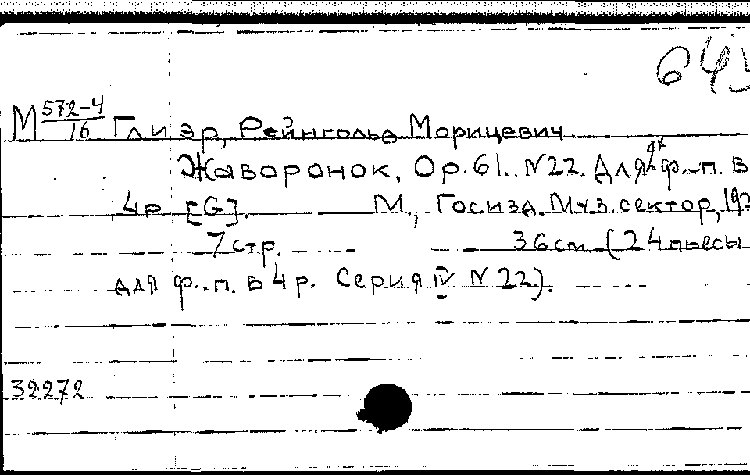 64
М 572-4/16 Глиэр, Рейнгольд Морицевич
Жаворонок, Op. 61. N22. Для 2х ф.-п. в
4 р. [G]. М., Госизд. Муз. сектор, 192
7 стр. 36 см. (24 пьесы
для ф.-п. в 4 р. Серия IV N 22).
32272